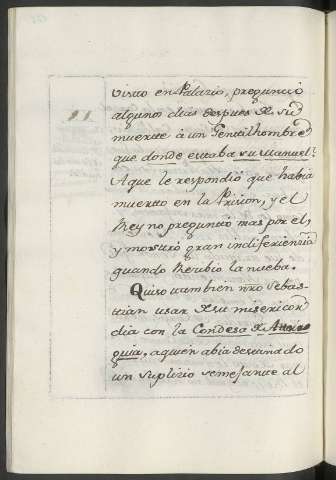 visto en Palazio, preguntó
algunos dias despues de su
muerte à un Gentilhombre
que donde estaba su Manuel?
A que le respondió que habia
muerto en la Prision, y el
Rey no preguntó mas por el,
y mostró gran indiferienzia
quando Rezibio la nueba.
Quiso tambien nro Sebas-
tian usar de su misericor
dia con la Condesa de
guia, a quien abia destinado
un suplizio semejante al